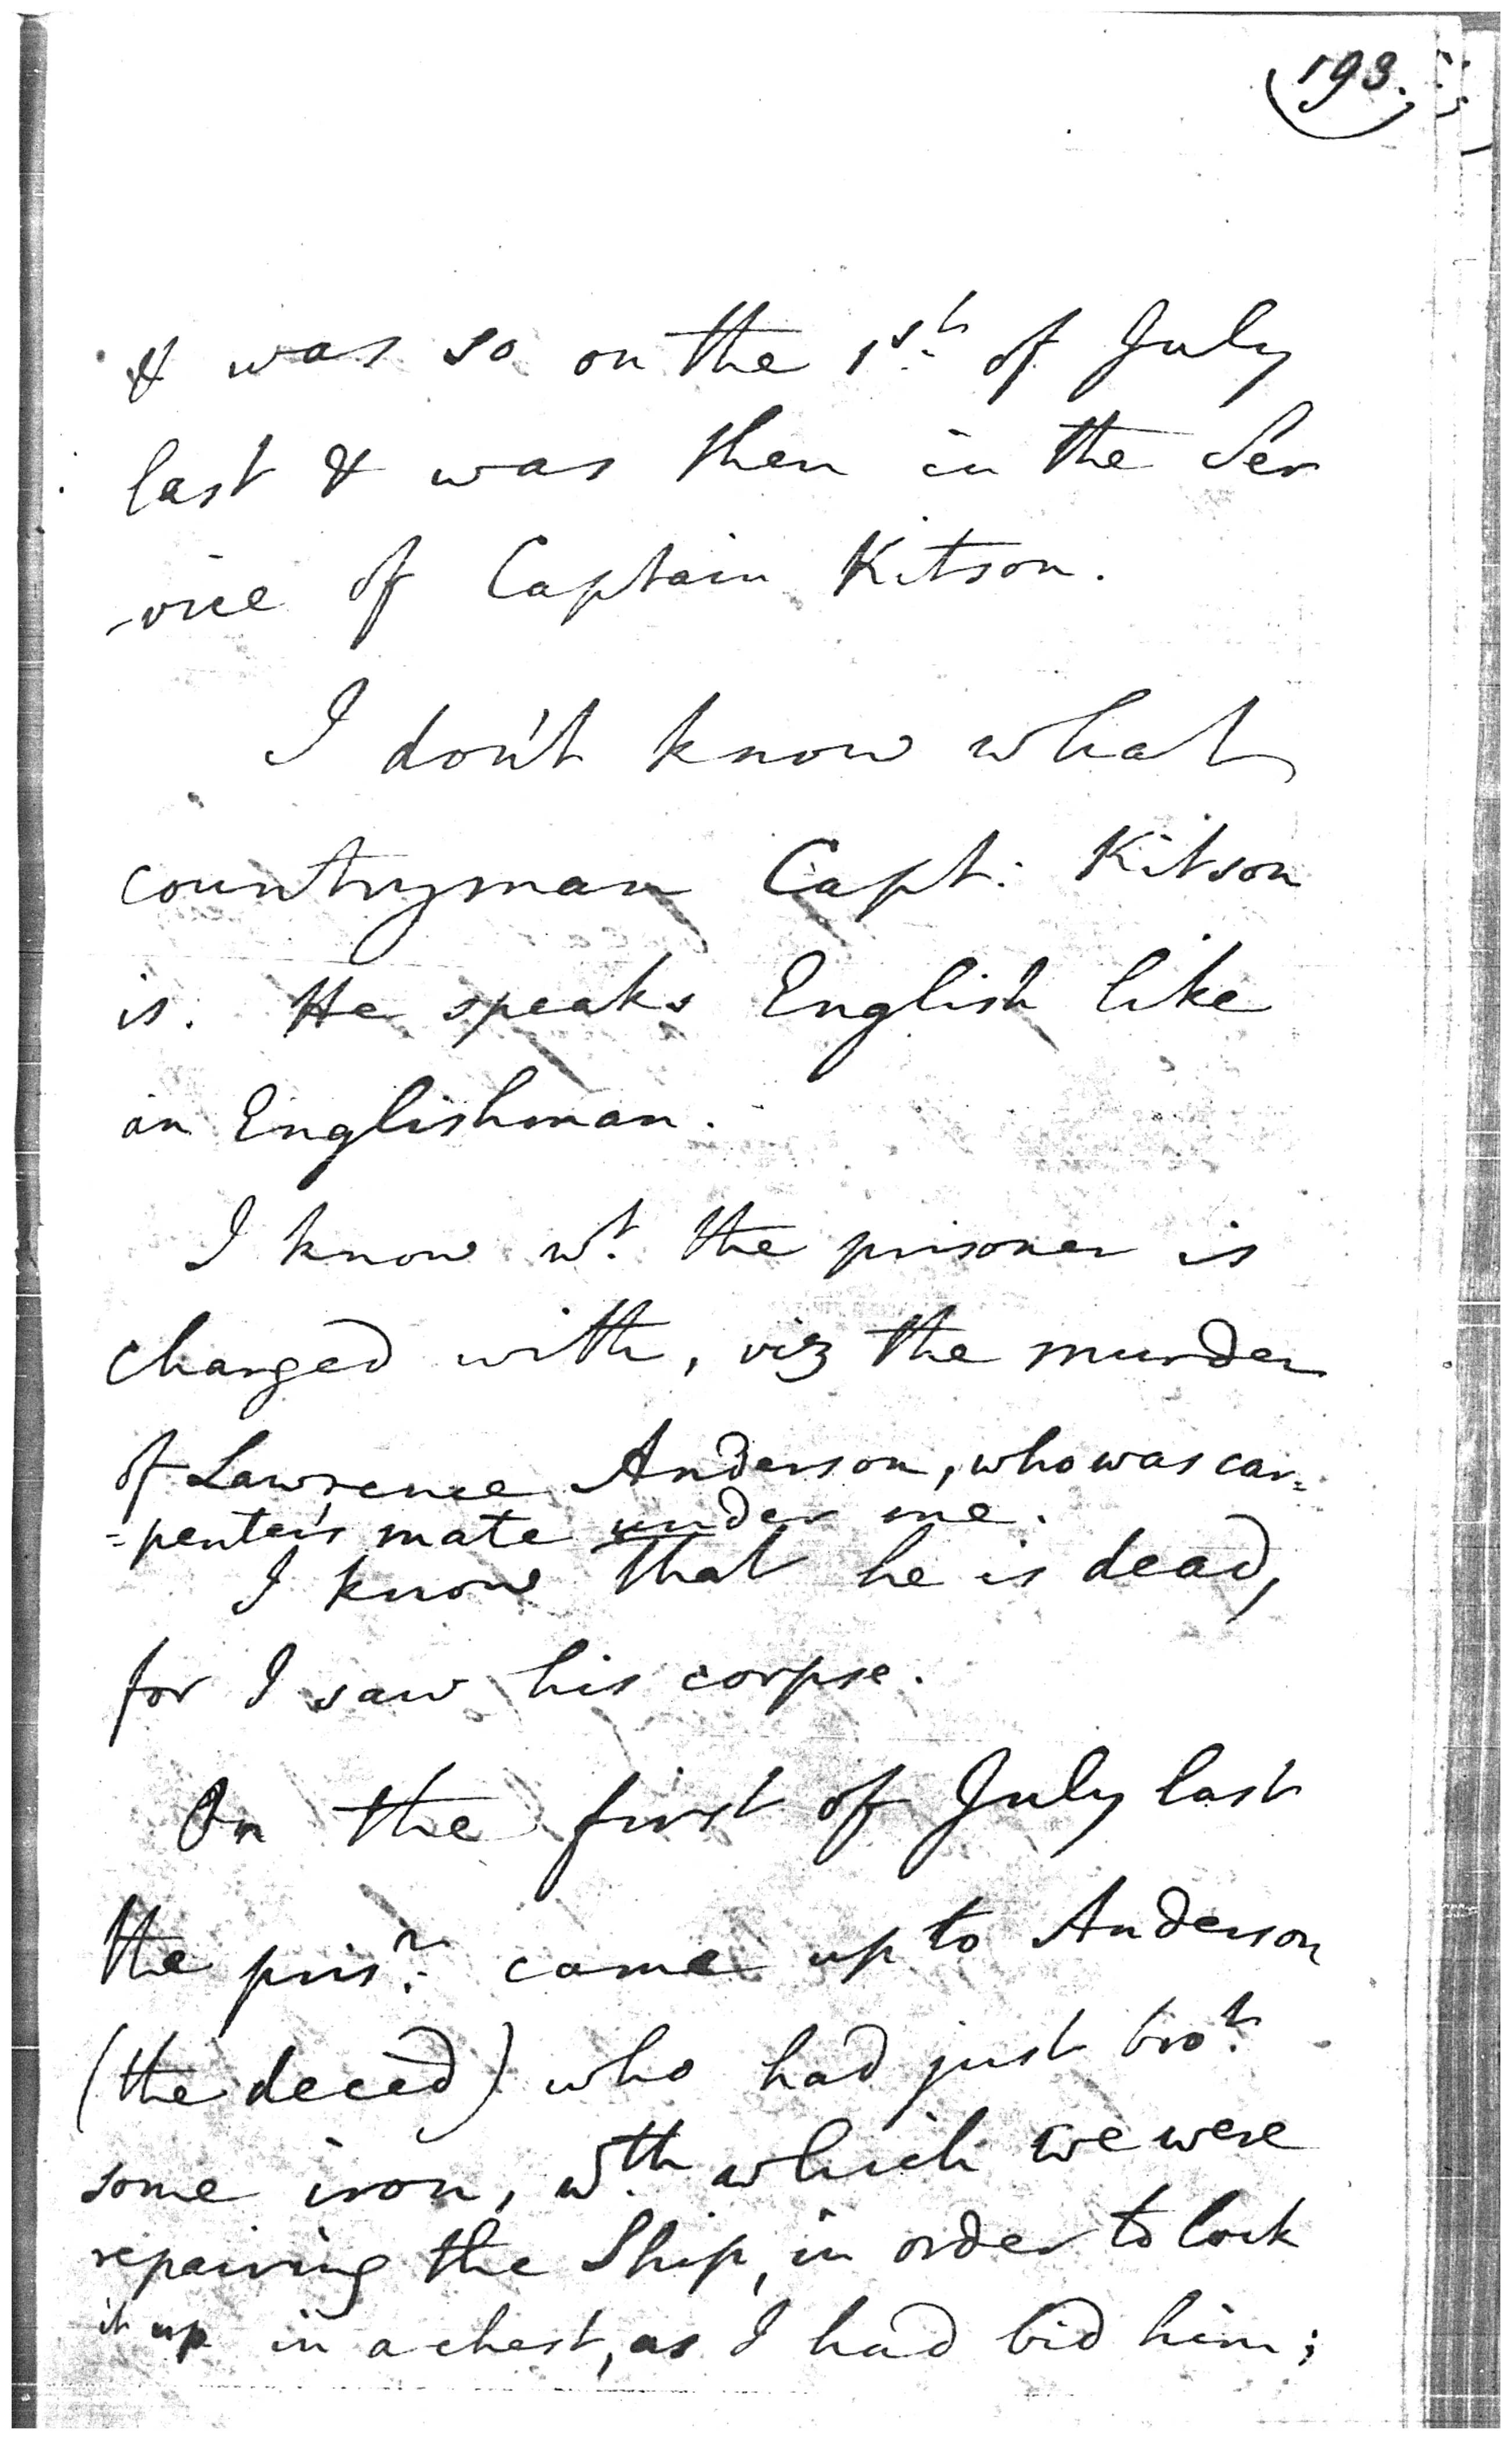 193.
& was so on the 1st. of July
last & was then in the Ser
-vice of Captain Kitson.
I don't know what
countryman Capt. Kitson
is. He speaks English like
an Englishman.
I know wt. the prisoner is
charged with, viz the murder
of Lawrence Anderson, who was car=
=penter's mate under me.
I know that he is dead,
for I saw his corpse.
On the first of July last
the prisr. came up to Anderson
(the deced) who had just brot.
some iron, wth. which we were
repairing the Ship, in order to lock
it up in a chest, as I had bid him;